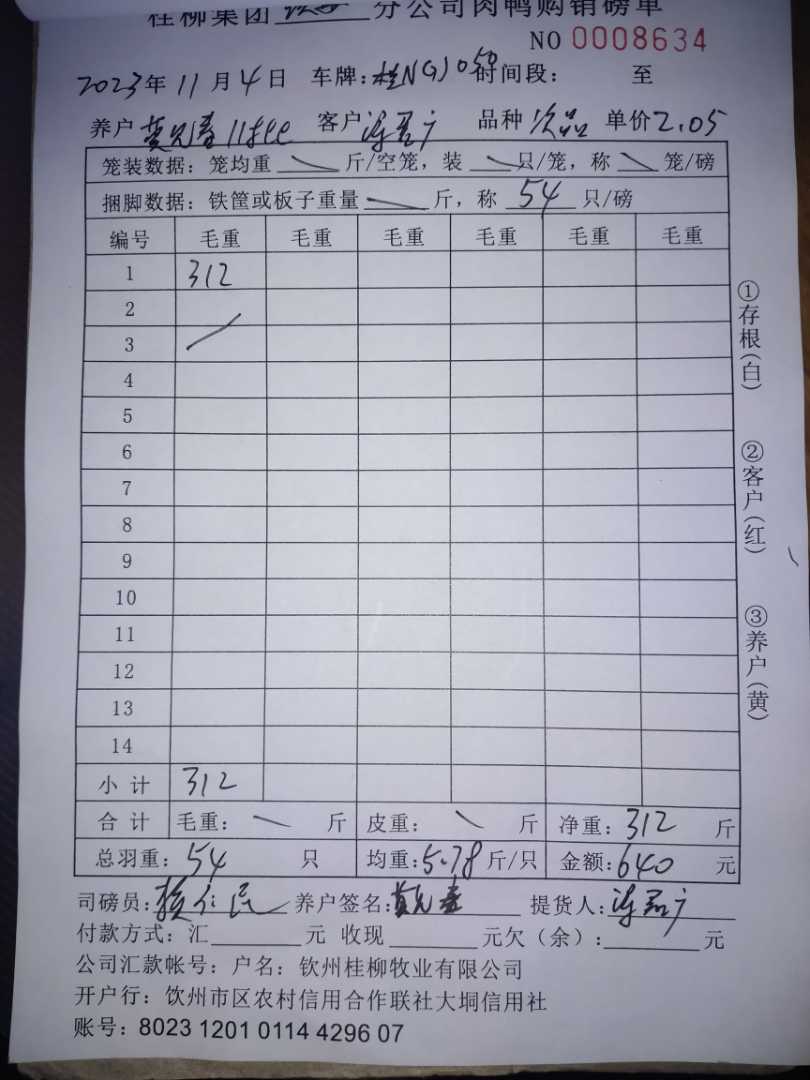 桂柳集团 分公司肉鸭购销磅单
NO 0008634
2023年11月4日 车牌:桂NGJ050 时间段: 至
养户 莫 春 11批 客户 冯 广 品种 次品 单价2.05
笼装数据:笼均重 斤/空笼,装 只/笼,称 笼/磅
捆脚数据:铁筐或板子重量 斤,称 54 只/磅
编号 毛重 毛重 毛重 毛重 毛重 毛重
1 312
2
3
4
5
6
7
8
9
10
11
12
13
14
小计 312
合计 毛重: 斤 皮重: 斤 净重:312 斤
总羽重:54 只 均重:5.78 斤/只 金额:640 元
司磅员: 仁民 养户签名:莫 春 提货人:冯 广
付款方式:汇 元 收现 元欠(余): 元
公司汇款帐号:户名:钦州桂柳牧业有限公司
开户行:饮州市区农村信用合作联社大垌信用社
账号:8023 1201 0114 4296 07
①存根(白)
②客户(红)
③养户(黄)